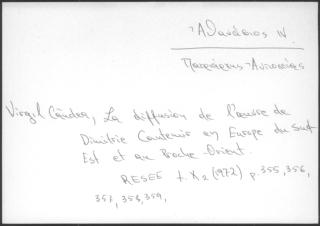 Ἀθανάσιος IV.
Πατριάρχης Ἀντιοχείας
Virgil Cândea, La diffusion de l'œuvre de
Dimitrie Cantemir en Europe du Sud
Est et au Proche-Orient.
RESEE t. X 2 (1972) p. 355, 356,
357, 358, 359,